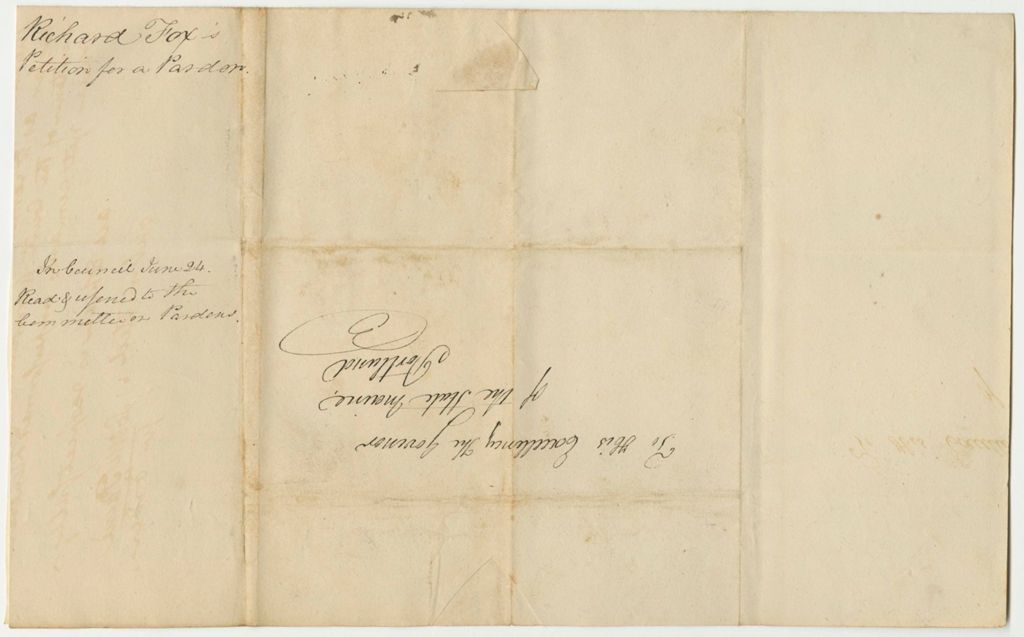 Richard Fox's
Petition for a Pardon.
In Council June 24.
Read & referred to the
Committee on Pardons.
To His Excellency The Govenor
of the State Maine,
Portland